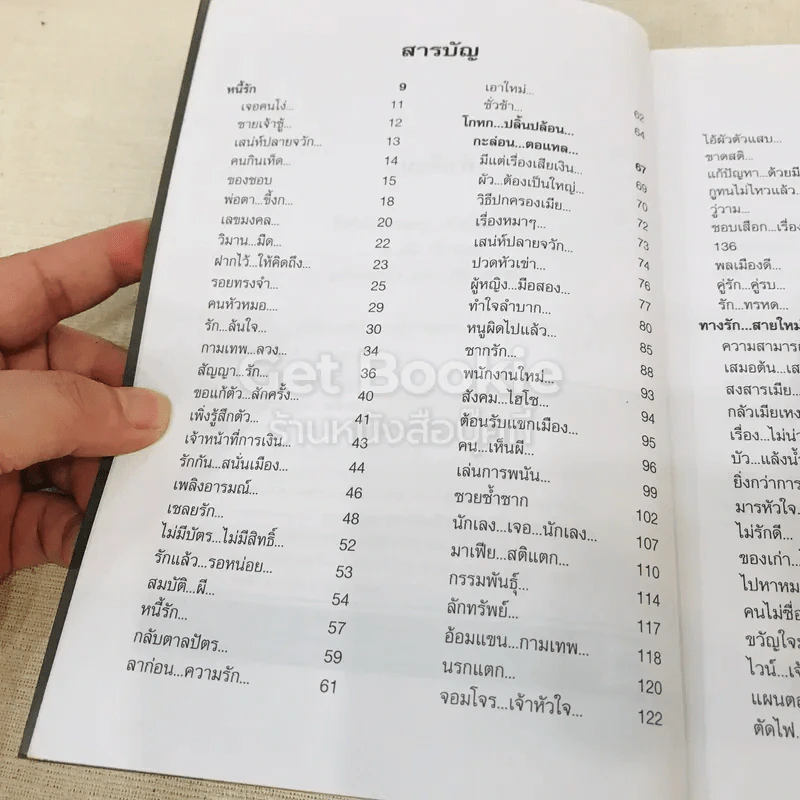 สารบัญ
หนี้รัก 9
เจอคนโง่... 11
ชายเจ้าชู้... 12
เสน่ห์ปลายจวัก... 13
คนกินเห็ด... 14
ของชอบ 15
พ่อตา...ขี้งก... 18
เลขมงคล... 20
วิมาน...มืด... 22
ฝากไว้...ให้คิดถึง... 23
รอยทรงจำ... 25
คนหัวหมอ.... 29
รัก...ล้นใจ... 30
กามเทพ...ลวง... 34
สัญญา...รัก... 36
ขอแก้ตัว...ลักครั้ง... 40
เพิ่งรู้สึกตัว... 41
เจ้าหน้าที่การเงิน... 43
รักกัน...สนั่นเมือง... 44
เพลิงอารมณ์... 46
เชลยรัก... 48
ไม่มีบัตร...ไม่มีสิทธิ์... 52
รักแล้ว...รอหน่อย... 53
สมบัติ...ผี... 54
หนี้รัก... 57
กลับตาลปัตร... 59
ลาก่อน...ความรัก... 61
เอาใหม่...
ชั่วช้า... 62
โกหก...ปลิ้นปล้อน... 64
กะล่อน...ตอแหล...
มีแต่เรื่องเสียเงิน... 67
ผัว...ต้องเป็นใหญ่... 69
วิธีปกครองเมีย... 70
เรื่องหมาๆ... 72
เสน่ห์ปลายจวัก... 73
ปวดหัวเข่า... 74
ผู้หญิง...มือสอง... 76
ทำใจลำบาก... 77
หนูผิดไปแล้ว... 80
ซากรัก... 85
พนักงานใหม่... 88
สังคม...ไฮโซ... 93
ต้อนรับแขกเมือง... 94
คน...เห็นผี... 95
เล่นการพนัน... 96
ซวยซ้ำซาก 99
นักเลง...เจอ...นักเลง... 102
มาเฟีย...สติแตก... 107
กรรมพันธุ์... 110
ลักทรัพย์... 114
อ้อมแขน...กามเทพ... 117
นรกแตก... 118
จอมโจร...เจ้าหัวใจ... 120
122
ไอ้ผัวตัวแสบ...
ขาดสติ...
แก้ปัญหา...ด้วยมี
กูทนไม่ไหวแล้ว...
วู่วาม...
ชอบเสือก...เรื่อง
136
พลเมืองดี...
คู่รัก...คู่รบ...
รัก...ทรหด...
ทางรัก...สายใหม่
ความสามารถ
เสมอต้น...เส
สงสารเมีย...
กลัวเมียเหงา
เรื่อง...ไม่น่า
บัว...แล้งน้ำ
ยิ่งกว่าการ
มารหัวใจ...
ไม่รักดี...
ของเก่า...
ไปหาหม
คนไม่ซื่อ
ขวัญใจม
ไวน์...เจ้
แผนตอ
ตัดไฟ...
Get Bookie
ร้านหนังสือบุ๊คกี้